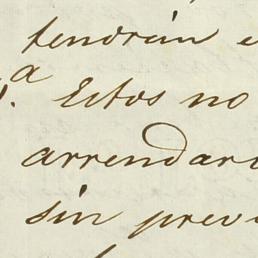 tendrán e
a. Estos no
arrendar
sin prev